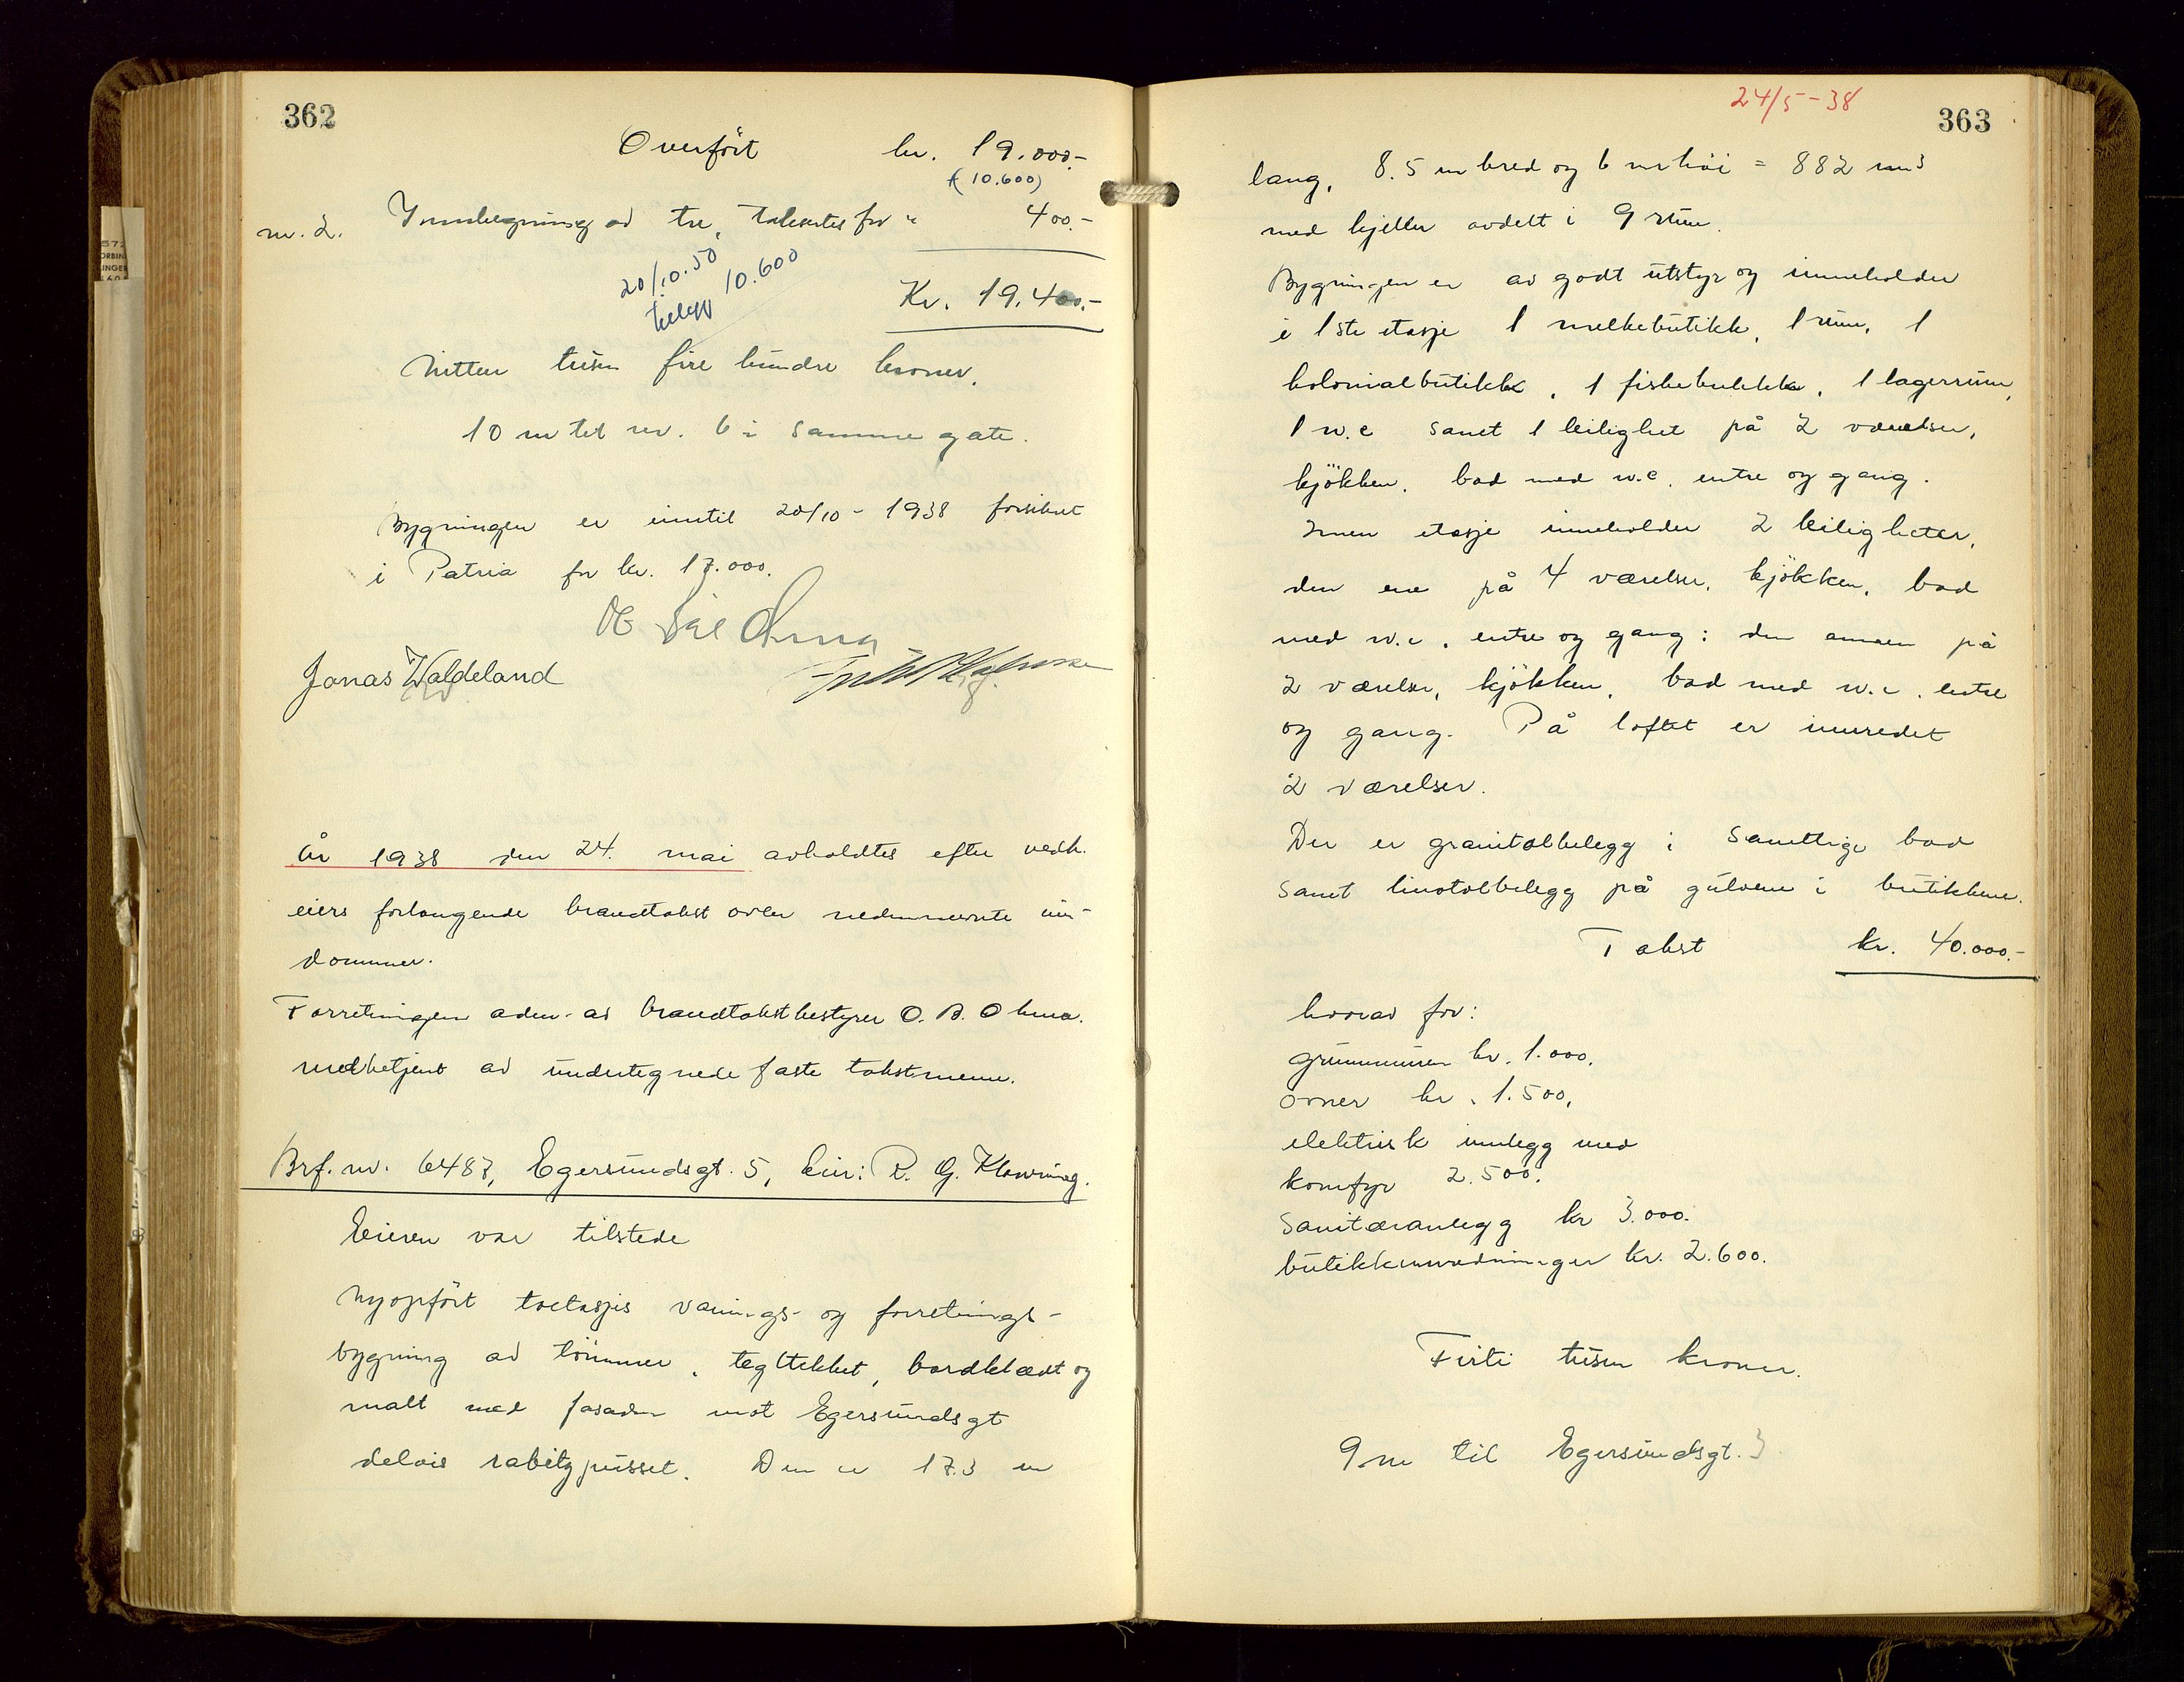 362
Overfört kr. 19.000.-
(10.600)
nr. 2. av tre, takseres for " 400.-
20/10.50
tillegg 10.600
Kr. 19.400.-
Nitten tusen fire hundre kroner.
10 m til nr. 6 i samme gate.
Bygningen er inntil 20/10 - 1938 forsikret
i Patria for kr. 17.000.
Jonas Waldeland
År 1938 den 24. mai avholdtes efter vedk.
eiers forlangende brandtakst over nedennevnte eien-
dommer.
Forretningen adm. av brandtakstbestyrer O. B. Ohma.
medbetjent av undertegnede faste takstmenn.
Brf. nr. 6487, Egersundsgt. 5, eier: R. G. Klovning.
Eieren var tilstede
Nyopfört toetasjes vånings- og forretnings-
bygning av tömmer, tegltekket, bordklædt og
malt med fasaden mot Egersundsgt
delvis rabitzpusset. Den er 17.3 m
24/5-38
363
lang, 8.5 m bred og 6 m höi = 882 m3
med kjeller avdelt i 9 rum.
Bygningen er av godt utstyr og inneholder
i 1ste etasje 1 melkebutikk, 1 rum, 1
kolonialbutikk, 1 fiskebutikk, 1 lagerrum,
1 w.c samt 1 leilighet på 2 værelser,
kjökken, bad med w.c. entre og gang.
2nen etasje inneholder 2 leiligheter,
den ene på 4 værelser, kjökken, bad
med w.c. entre og gang; den annen på
2 værelser, kjökken, bad med w.c. entre
og gang. På loftet er innredet
2 værelser.
Der er granitolbelegg i samtlige bad
samt linotolbelegg på gulvene i butikkene.
Takst kr. 40.000.-
hvorav for:
grunnmuren kr. 1.000.
ovner kr. 1.500,
elektrisk innlegg med
komfyr 2.500.
Sanitæranlegg kr 3.000.
butikkinnredninger kr. 2.600.
Firti tusen kroner.
9 m til Egersundsgt. 3